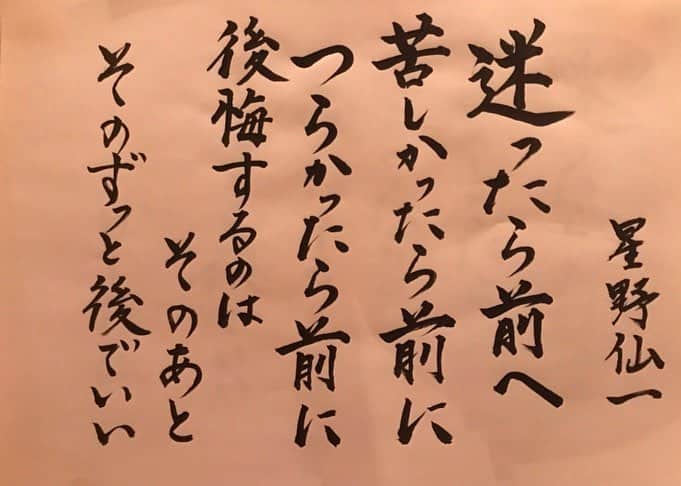 星野仙一
迷ったら前へ
苦しかったら前に
つらかったら前に
後悔するのは
そのあと
そのずっと後でいい